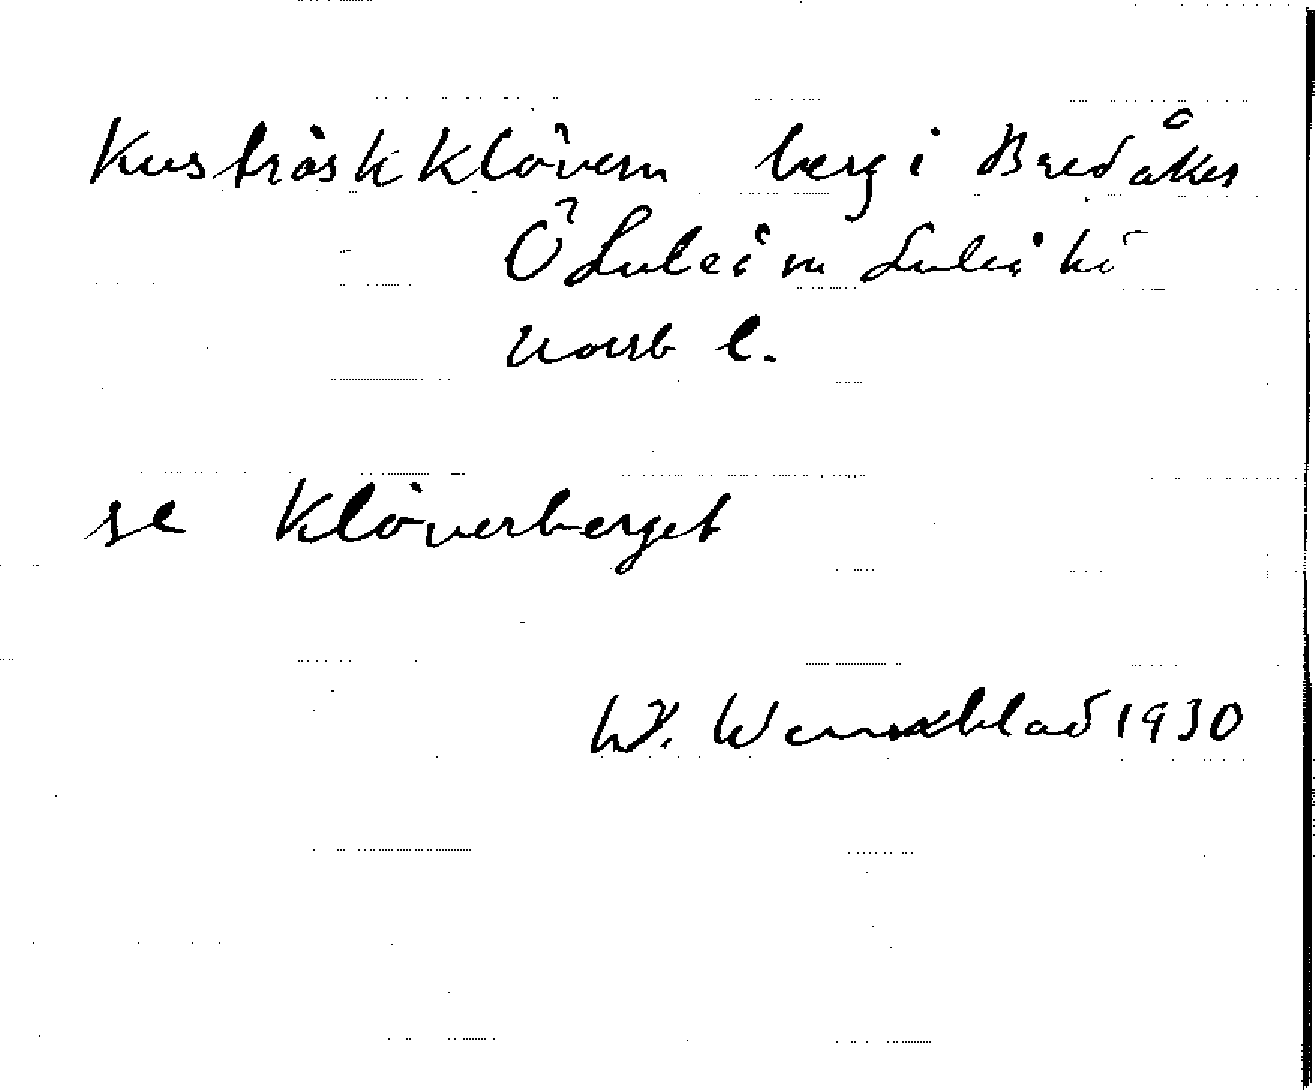 Kusträskklövern berg i Bredåker
Ö Luleå sn Luleå hd
Norrb l.
se Klöverberget
W. Wennerblad 1930